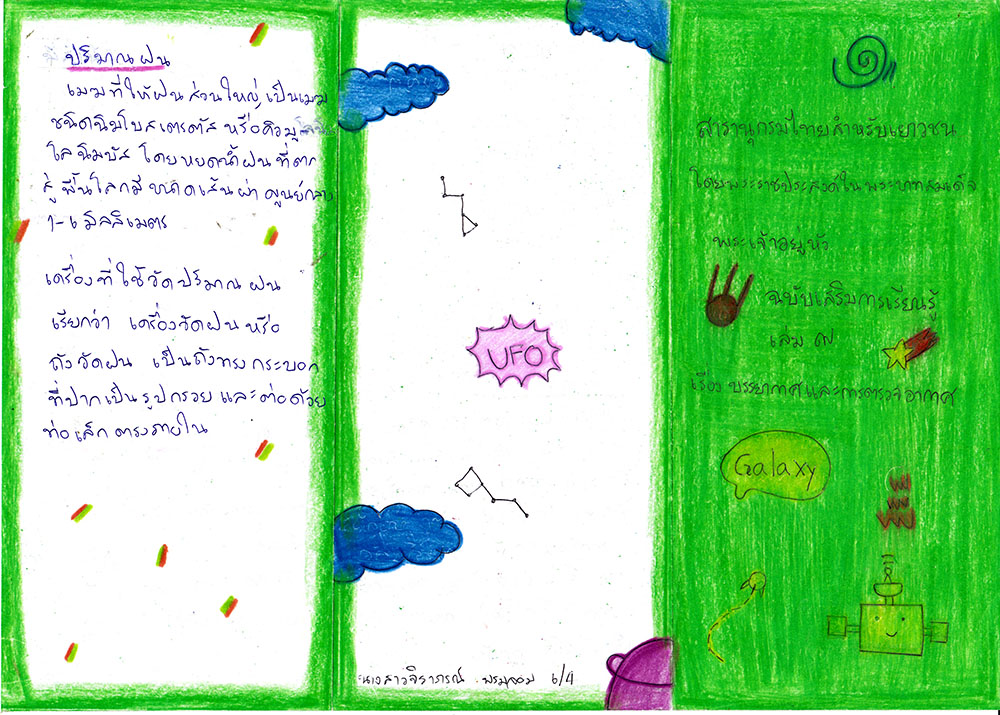 ปริมาณฝน
เมฆที่ให้ฝนส่วนใหญ่เป็นเมฆ
ชนิดนิมโบสเตรตัส หรือคิวมู
โลนิมบัส โดยหยดน้ำฝนที่ตก
สู่พื้นโลกมีขนาดเส้นผ่าศูนย์กลาง
มิลลิเมตร
เครื่องที่ใช้วัดปริมาณฝน
เรียกว่า เครื่องวัดฝนหรือ
ถังวัดฝน เป็นถังทรงกระบอก
ที่ปากเป็นรูปกรวย และต่อด้วย
ท่อเล็กตรงภายใน
UFO
นางสาวจิราภรณ์ 6/4
สารานุกรมไทยสำหรับเยาวชน
โดยพระราชประสงค์ในพระบาทสมเด็จ
พระเจ้าอยู่หัว
ฉบับเสริมการเรียนรู้
เล่ม ๗
เรื่อง บรรยากาศและการตรวจอากาศ
Galaxy